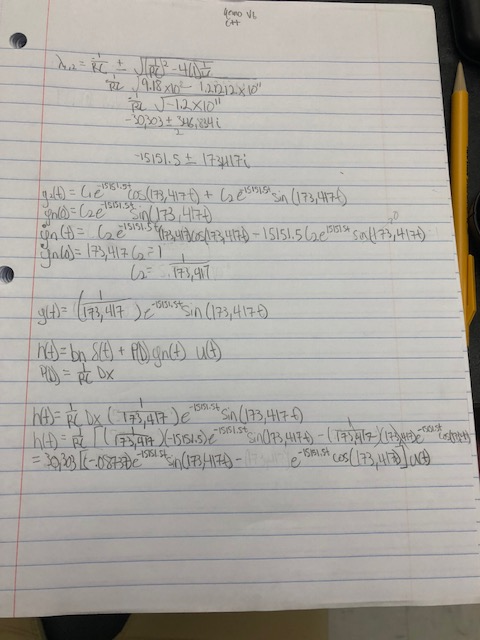 C++
λ₁,₂ = -1/RC ± √((1/RC)² - 4(1)1/LC
-1/RC √9.18 x 10⁸ - 1.21212 x 10¹¹
-1/RC √-1.2 x 10¹¹
-30,303 ± 346,834i
2
-15151.5 ± 173,417i
yn(t) = C₁e^-15151.5t cos(173,417t) + C₂e^-15151.5t sin(173,417t)
yn(0) = C₂e^-15151.5t sin(173,417t)
ẏn(t) = C₂e^-15151.5t (173,417)cos(173,417t) - 15151.5 C₂e^-15151.5t sin(173,417t) 0
ẏn(0) = 173,417 C₂ = 1
C₂ = 1/173,417
y(t) = (1/173,417) e^-15151.5t sin(173,417t)
h(t) = bn δ(t) + P(D) yn(t) u(t)
P(D) = 1/RC Dx
h(t) = 1/RC Dx (1/173,417) e^-15151.5t sin(173,417t)
h(t) = 1/RC [(1/173,417)(-15151.5)e^-15151.5t sin(173,417t) - (1/173,417)(173,417)e^-15151.5t cos(173,417t)
= 30,303 [(-.08737)e^-15151.5t sin(173,417t) - e^-15151.5t cos(173,417t)] u(t)